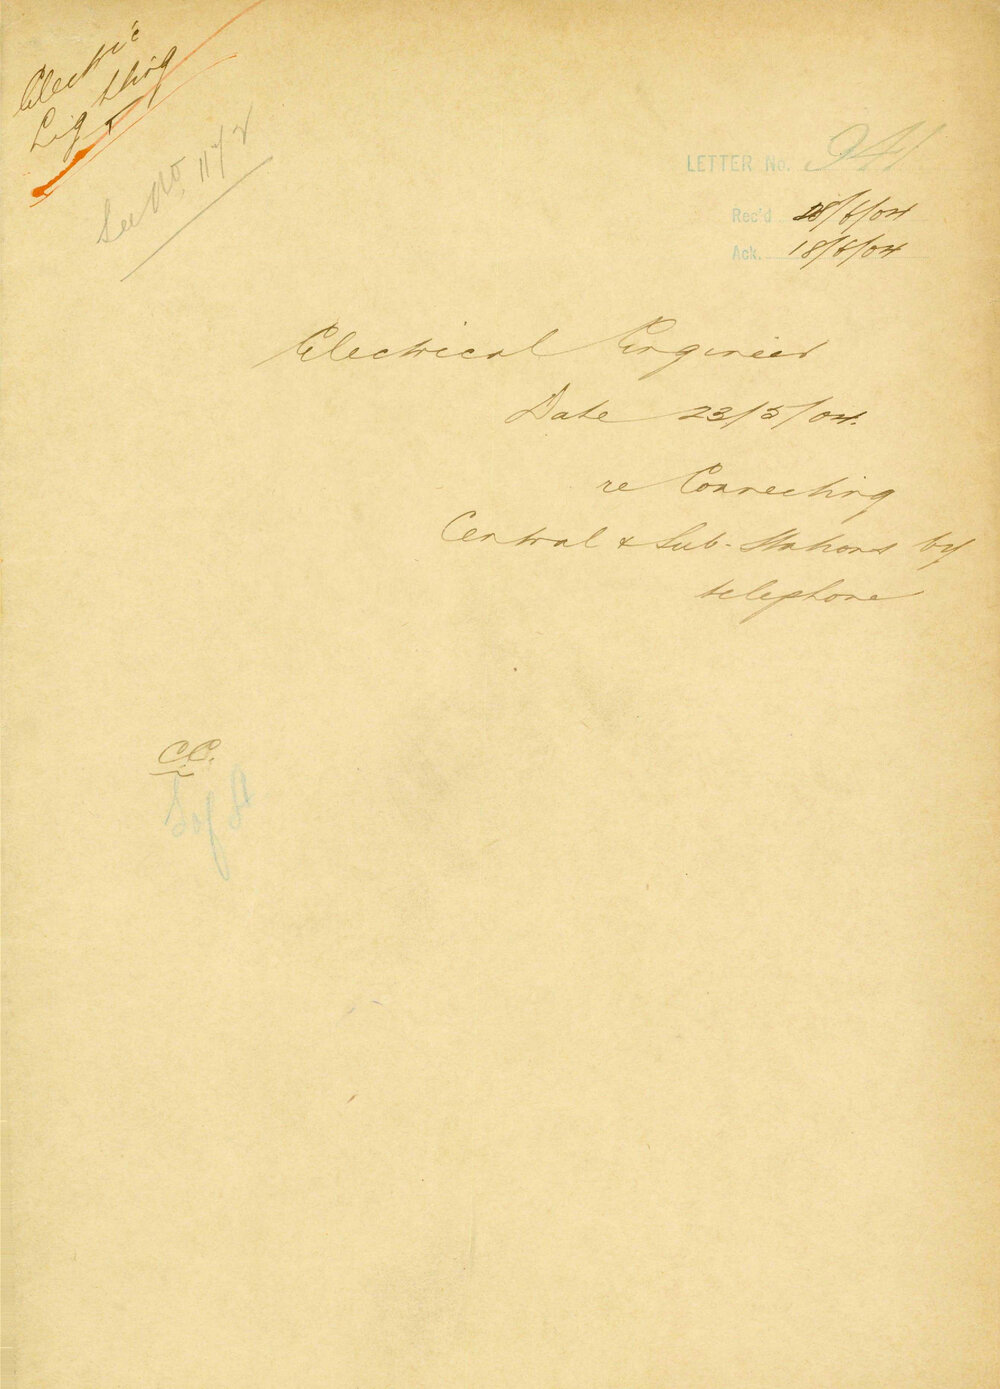 Electric
Lighting
See No. 1172
LETTER No. 941
Rec'd 18/6/04
Ack. 18/6/04
Electrical Engineer
Date 23/5/04.
re Connecting
Central & Sub-Stations by
telephone
C.C.